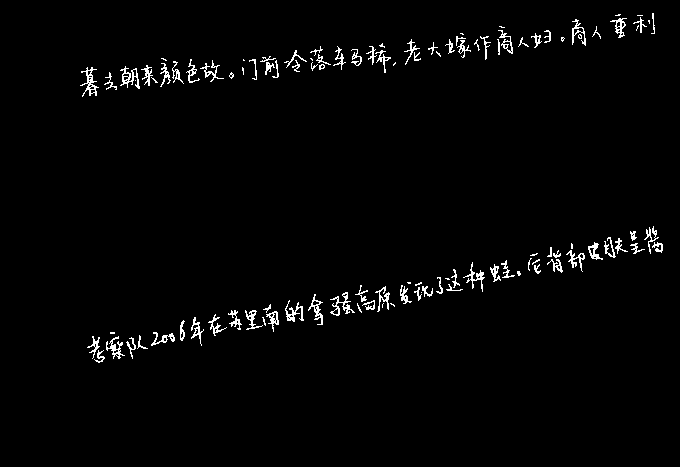 暮去朝来颜色故。门前冷落车马稀,老大嫁作商人妇。商人重利
考察队2006年在苏里南的拿骚高原发现了这种蛙。它背部皮肤呈酱